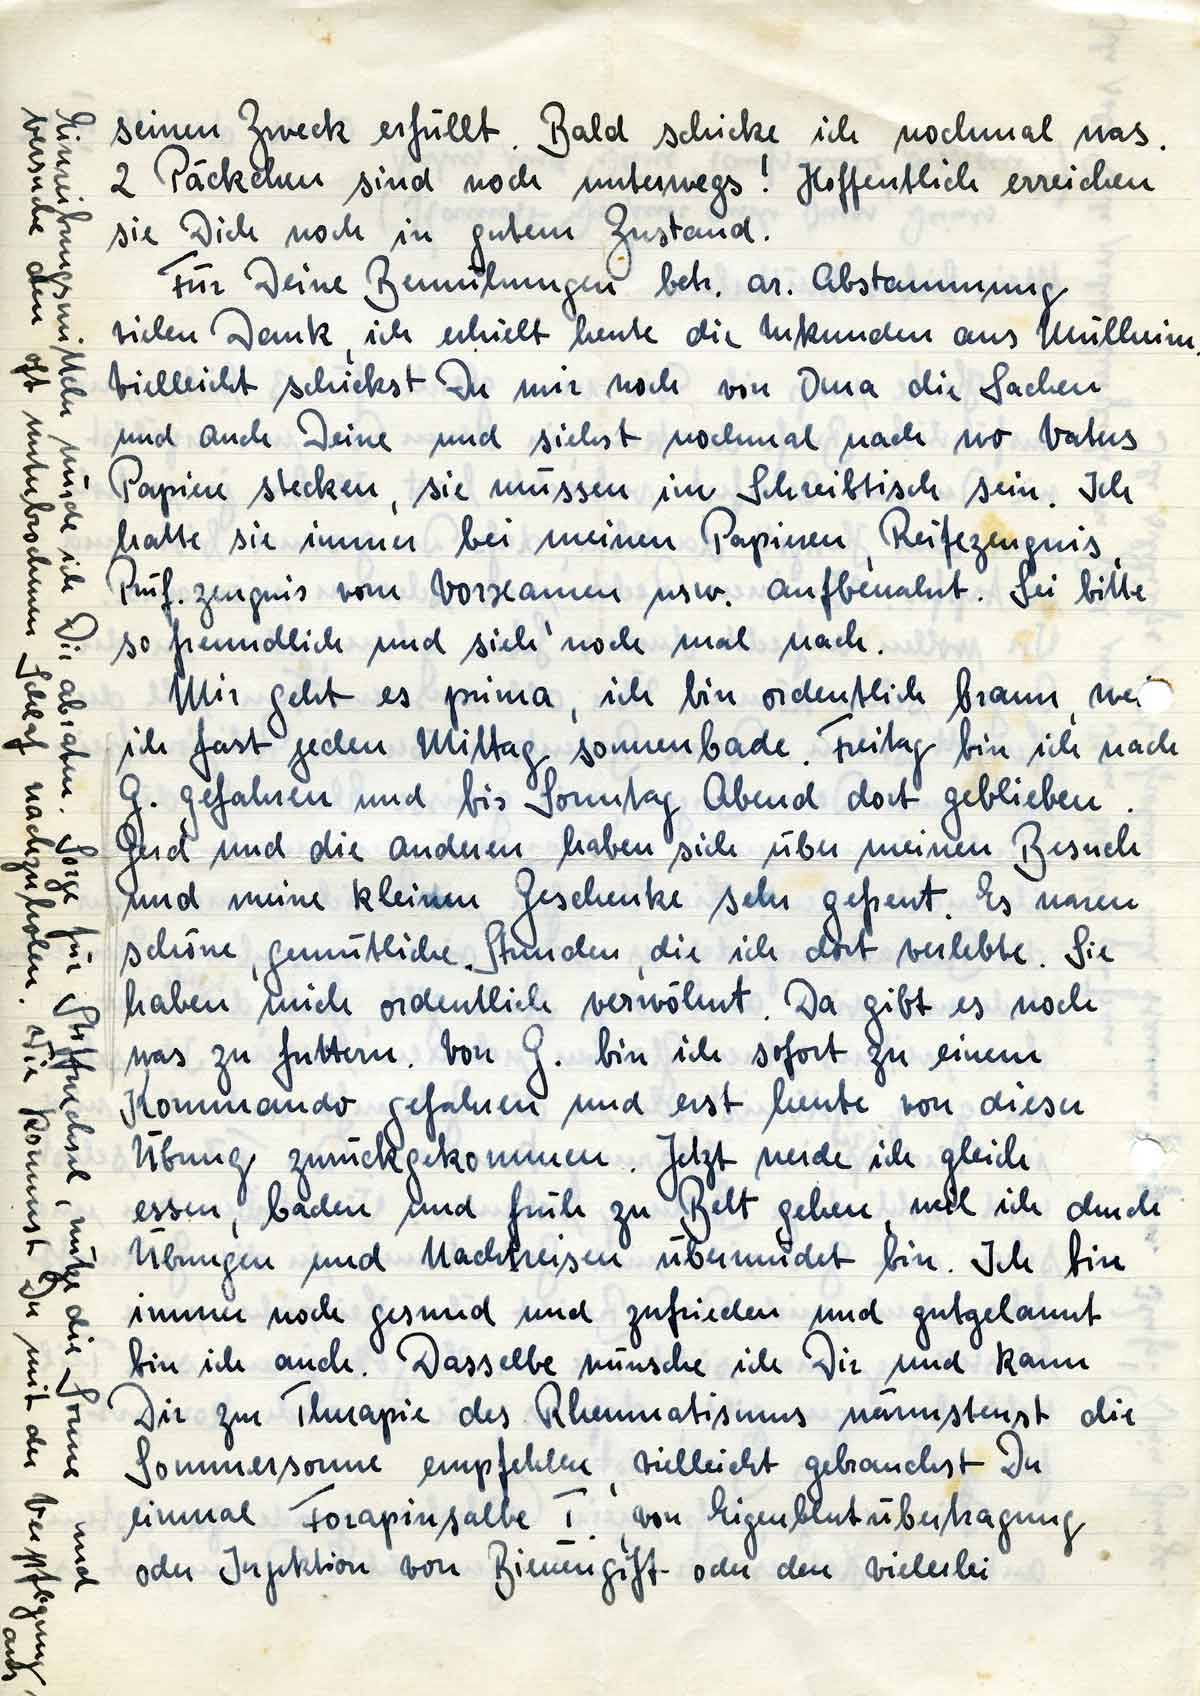 seinen Zweck erfüllt. Bald schicke ich nochmal was.
2 Päckchen sind noch unterwegs! Hoffentlich erreichen
sie Dich noch in gutem Zustand.
Für Deine Bemühungen betr. ar. Abstammung
vielen Dank, ich erhielt heute die Urkunden aus Mülheim.
Vielleicht schickst Du mir noch von Oma die Sachen
und auch Deine und siehst nochmal nach wo Vaters
Papiere stecken, sie müssen im Schreibtisch sein. Ich
hatte sie immer bei meinen Papieren, Reifezeugnis,
Prüf.zeugnis vom Vorexamen usw. aufbewahrt. Sei bitte
so freundlich und sieh' noch mal nach.
Mir geht es prima, ich bin ordentlich braun, wei
ich fast jeden Mittag sonnenbade. Freitag bin ich nach
G. gefahren und bis Sonntag Abend dort geblieben.
Gerd und die anderen haben sich über meinen Besuch
und meine kleinen Geschenke sehr gefreut. Es waren
schöne, gemütliche Stunden, die ich dort verlebte. Sie
haben mich ordentlich verwöhnt. Da gibt es noch
was zu futtern. Von G. bin ich sofort zu einem
Kommando gefahren und erst heute von dieser
Übung zurückgekommen. Jetzt werde ich gleich
essen, baden und früh zu Bett gehen, weil ich durch
Übungen und Nachtreisen übermüdet bin. Ich bin
immer noch gesund und zufrieden und gutgelaunt
bin ich auch. Dasselbe wünsche ich Dir und kann
Dir zur Therapie des Rheumatismus wärmstenst die
Sommersonne empfehlen, vielleicht gebrauchst Du
einmal Forapinsalbe I., von Eigenblutübertragung
oder Injektion von Bienengift oder den vielerlei
Einreibungsmitteln würde ich Dir abraten. Sorge für Stoffwechsel, nütze die Sonne und
versuche den oft unterbrochenen Schlaf nachzuholen. Wie kommst Du mit der Verpflegung
aus